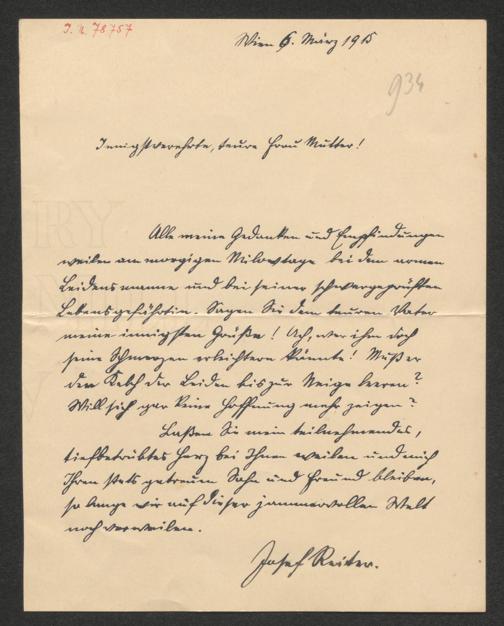 I. N. 78757
Wien 6. März 1915
934
Innigstverehrte, teure Frau Mutter!
Alle meine Gedanken und Empfindungen
weilen am morgigen Tage bei dem armen
Leidensmanne und bei seiner schwergeprüften
Lebensgefährtin. Sagen Sie dem teuren Vater
meine innigsten Grüße! Ach, wer ihm doch
seine Schmerzen erleichtern könnte! Muß er
den Kelch der Leiden bis zur Neige leeren?
Will sich gar keine Hoffnung mehr zeigen?
Laßen Sie mein teilnehmendes,
tiefbetrübtes Herz bei Ihnen weilen und mich
Ihren stets getreuen Sohn und Freund bleiben,
so lange wir auf dieser jammervollen Welt
noch verweilen.
Josef Reiter.